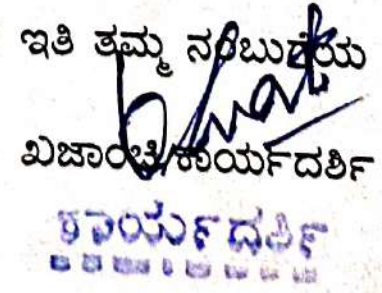 ಇತಿ ತಮ್ಮ ನಂಬುಗೆಯ
ಖಜಾಂಚಿ/ಕಾರ್ಯದರ್ಶಿ
ಕಾರ್ಯದರ್ಶಿ